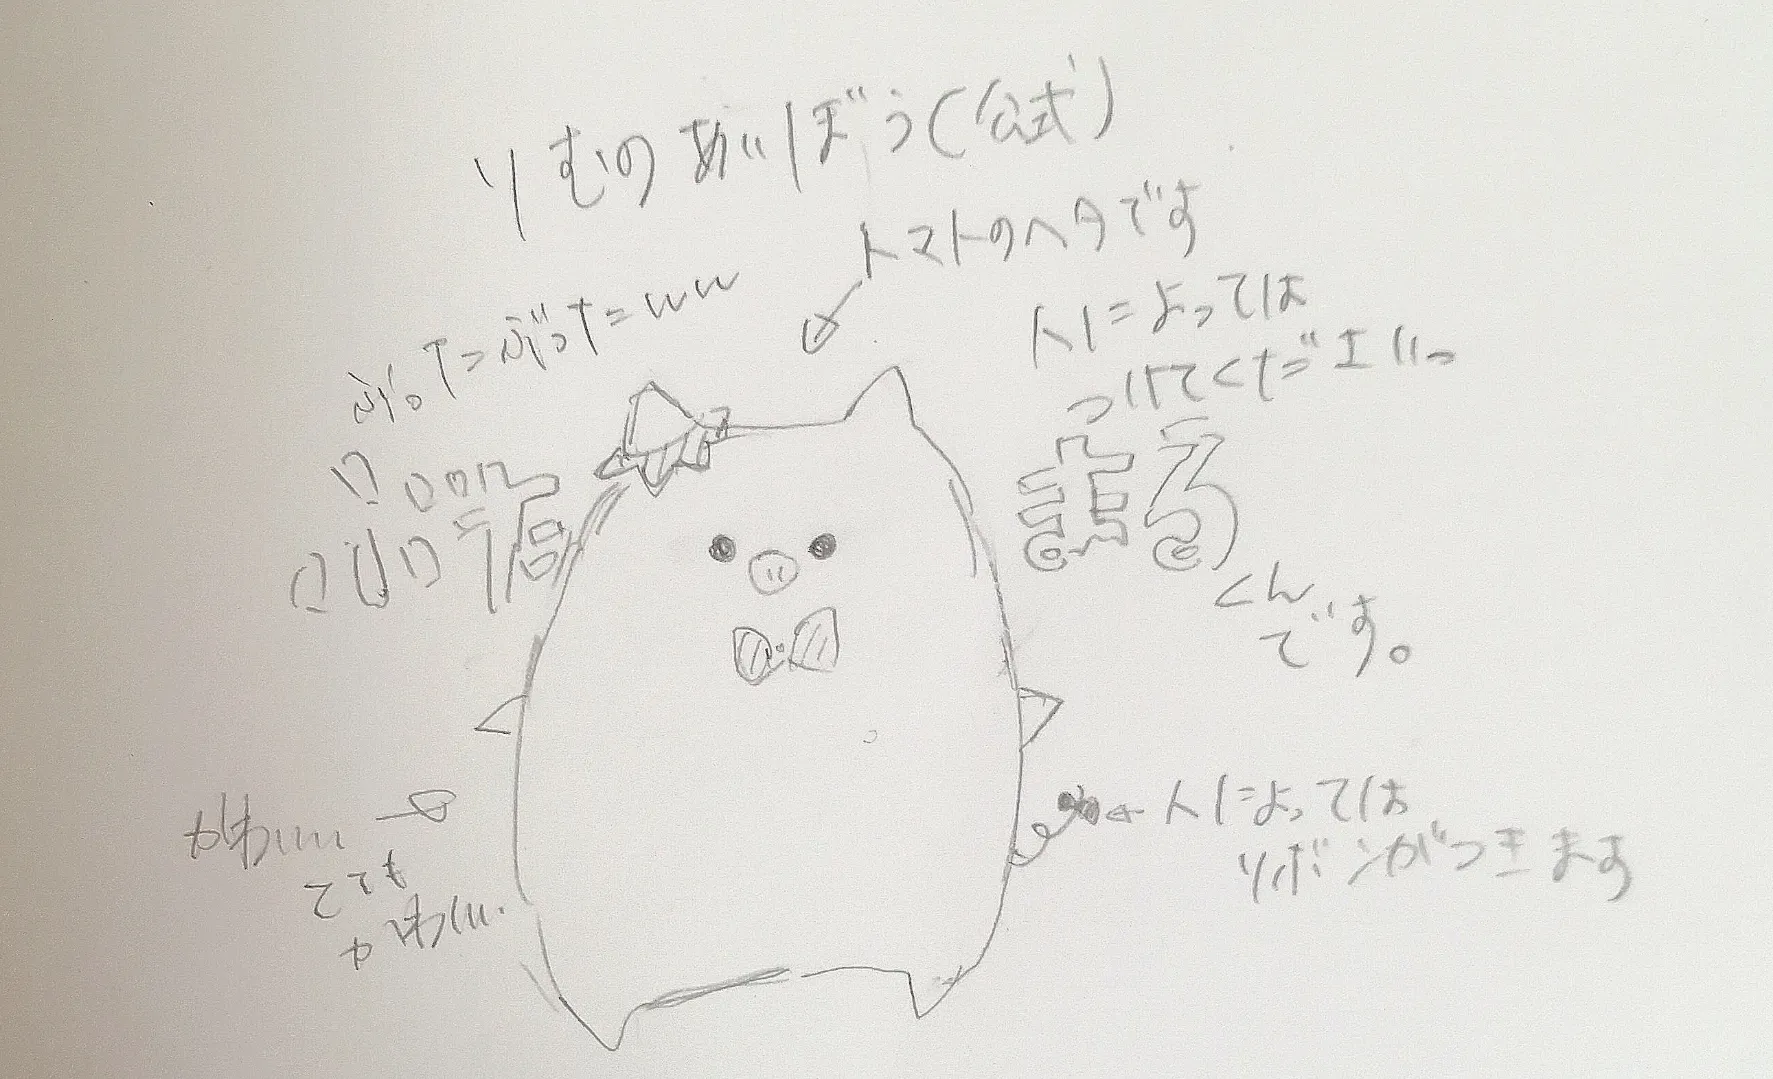 りむのあいぼう(公式)
トマトのヘタです
人によっては
つけてください。
ぶった=ぶったww
まる
くんです。
かわいい
とても
かわいい
人によっては
リボンがつきます